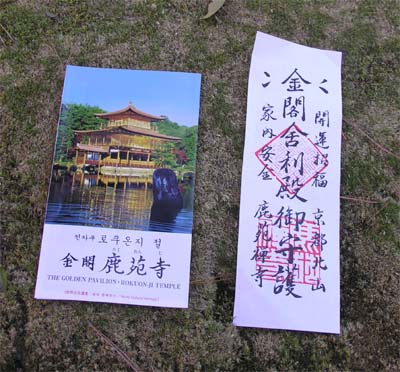 킨카쿠 로쿠온지 절
金閣 鹿苑寺
THE GOLDEN PAVILION · ROKUON-JI TEMPLE
開運招福 京都北山
金閣舎利殿御守護
家内安全 鹿苑禅寺